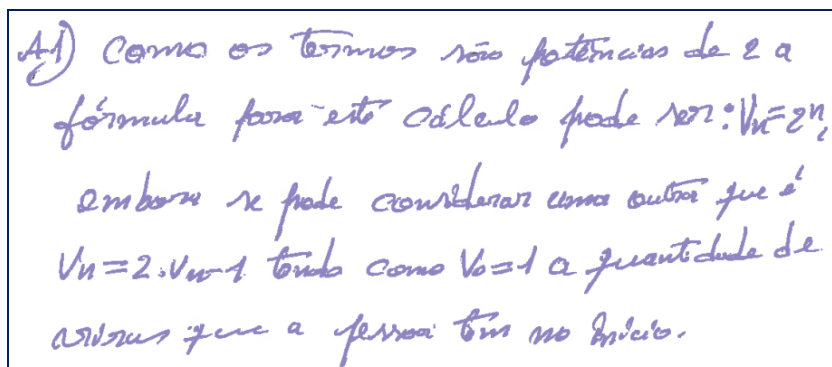 A1) Como os termos são potências de 2 a
fórmula para este cálculo pode ser: Vn=2ⁿ,
embora se pode considerar uma outra que é
Vn=2.Vn-1 tendo como V₀=1 a quantidade de
que a pessoa tem no início.